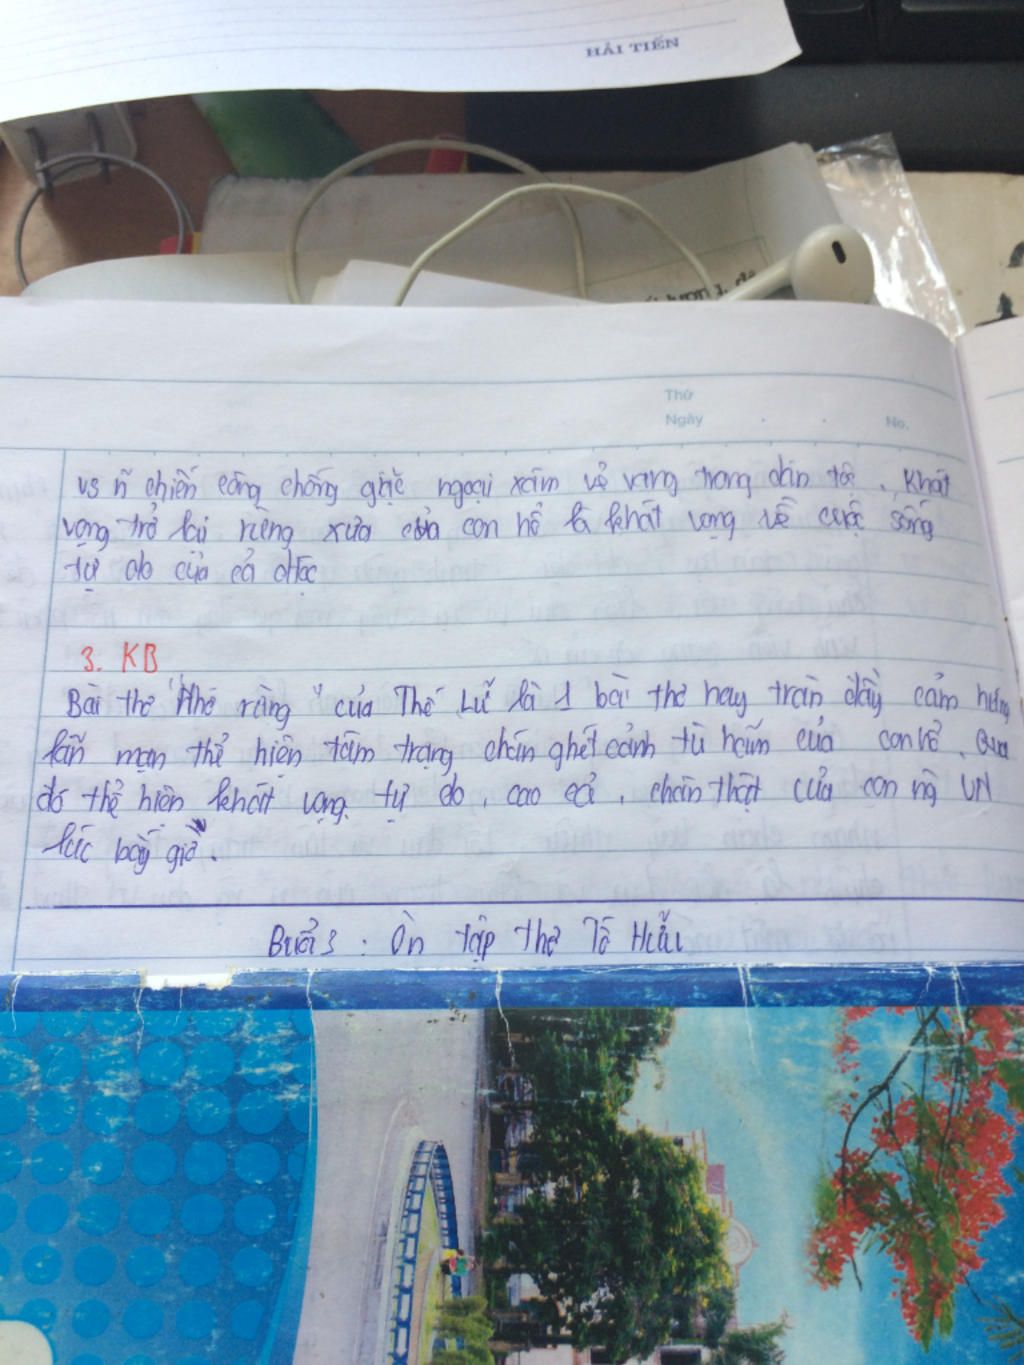 HẢI TIẾN
Thứ
Ngày . . No.
vs ñ chiến công chống giặc ngoại xâm vẻ vang trong dân tộc. Khát
vọng trở lại rừng xưa của con hổ là khát vọng về cuộc sống
tự do của cả dtộc
3. KB
Bài thơ "Nhớ rừng" của Thế Lữ là 1 bài thơ hay tràn đầy cảm hứng
lãn mạn thể hiện tâm trạng chán ghét cảnh tù hãm của con hổ. Qua
đó thể hiện khát vọng tự do, cao cả, chân thật của con ng VN
lúc bấy giờ.
Buổi 3 : Ôn tập thơ Tố Hữu